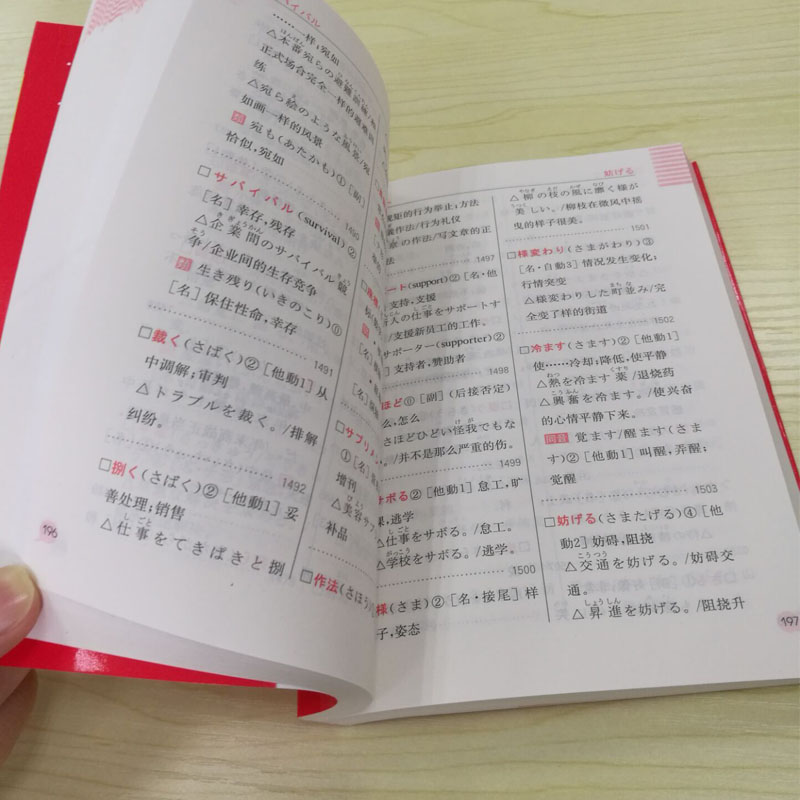 バイバル
……一样；宛如
△本番宛らの避難訓練
正式场合完全一样的避难训
练
△宛ら絵のような風景/宛
如画一样的风景
宛も(あたかも)①[副]
恰似，宛如
1490
□サバイバル(survival)②
[名]幸存，残存
△企業間のサバイバル競
争/企业间的生存竞争
生き残り(いきのこり)⓪
[名]保住性命，幸存
1491
□裁く(さばく)②[他動1]从
中调解；审判
△トラブルを裁く。/排解
纠纷。
1492
□捌く(さばく)②[他動1]妥
善处理；销售
△仕事をてきぱきと捌
196
□サプリメ
①[名]
增刊
△美容サプ
补品
□作法(さほう)
妨げる
规矩的行为举止；方法
作法/行为礼仪
章の作法/写文章的正
法
1497
ート(support)②[名・他
支持，支援
人の仕事をサポートす
/支援新员工的工作。
サポーター(supporter)②
]支持者，赞助者
1498
ほど⓪[副](后接否定)
么，怎么
さほどひどい怪我でもな
。/并不是那么严重的伤。
1499
サボる②[他動1]怠工，旷
课，逃学
△仕事をサボる。/怠工。
△学校をサボる。/逃学。
1500
様(さま)②[名・接尾]样
子，姿态
△柳の枝の風に靡く様が
美しい。/柳枝在微风中摇
曳的样子很美。
1501
□様変わり(さまがわり)③
[名・自動3]情况发生变化；
行情突变
△様変わりした町並み/完
全变了样的街道
1502
□冷ます(さます)②[他動1]
使……冷却；降低，使平静
△熱を冷ます薬/退烧药
△興奮を冷ます。/使兴奋
的心情平静下来。
同音 覚ます/醒ます(さま
す)②[他動1]叫醒，弄醒；
觉醒
1503
□妨げる(さまたげる)④[他
動2]妨碍，阻挠
△交通を妨げる。/妨碍交
通。
△昇進を妨げる。/阻挠升
197